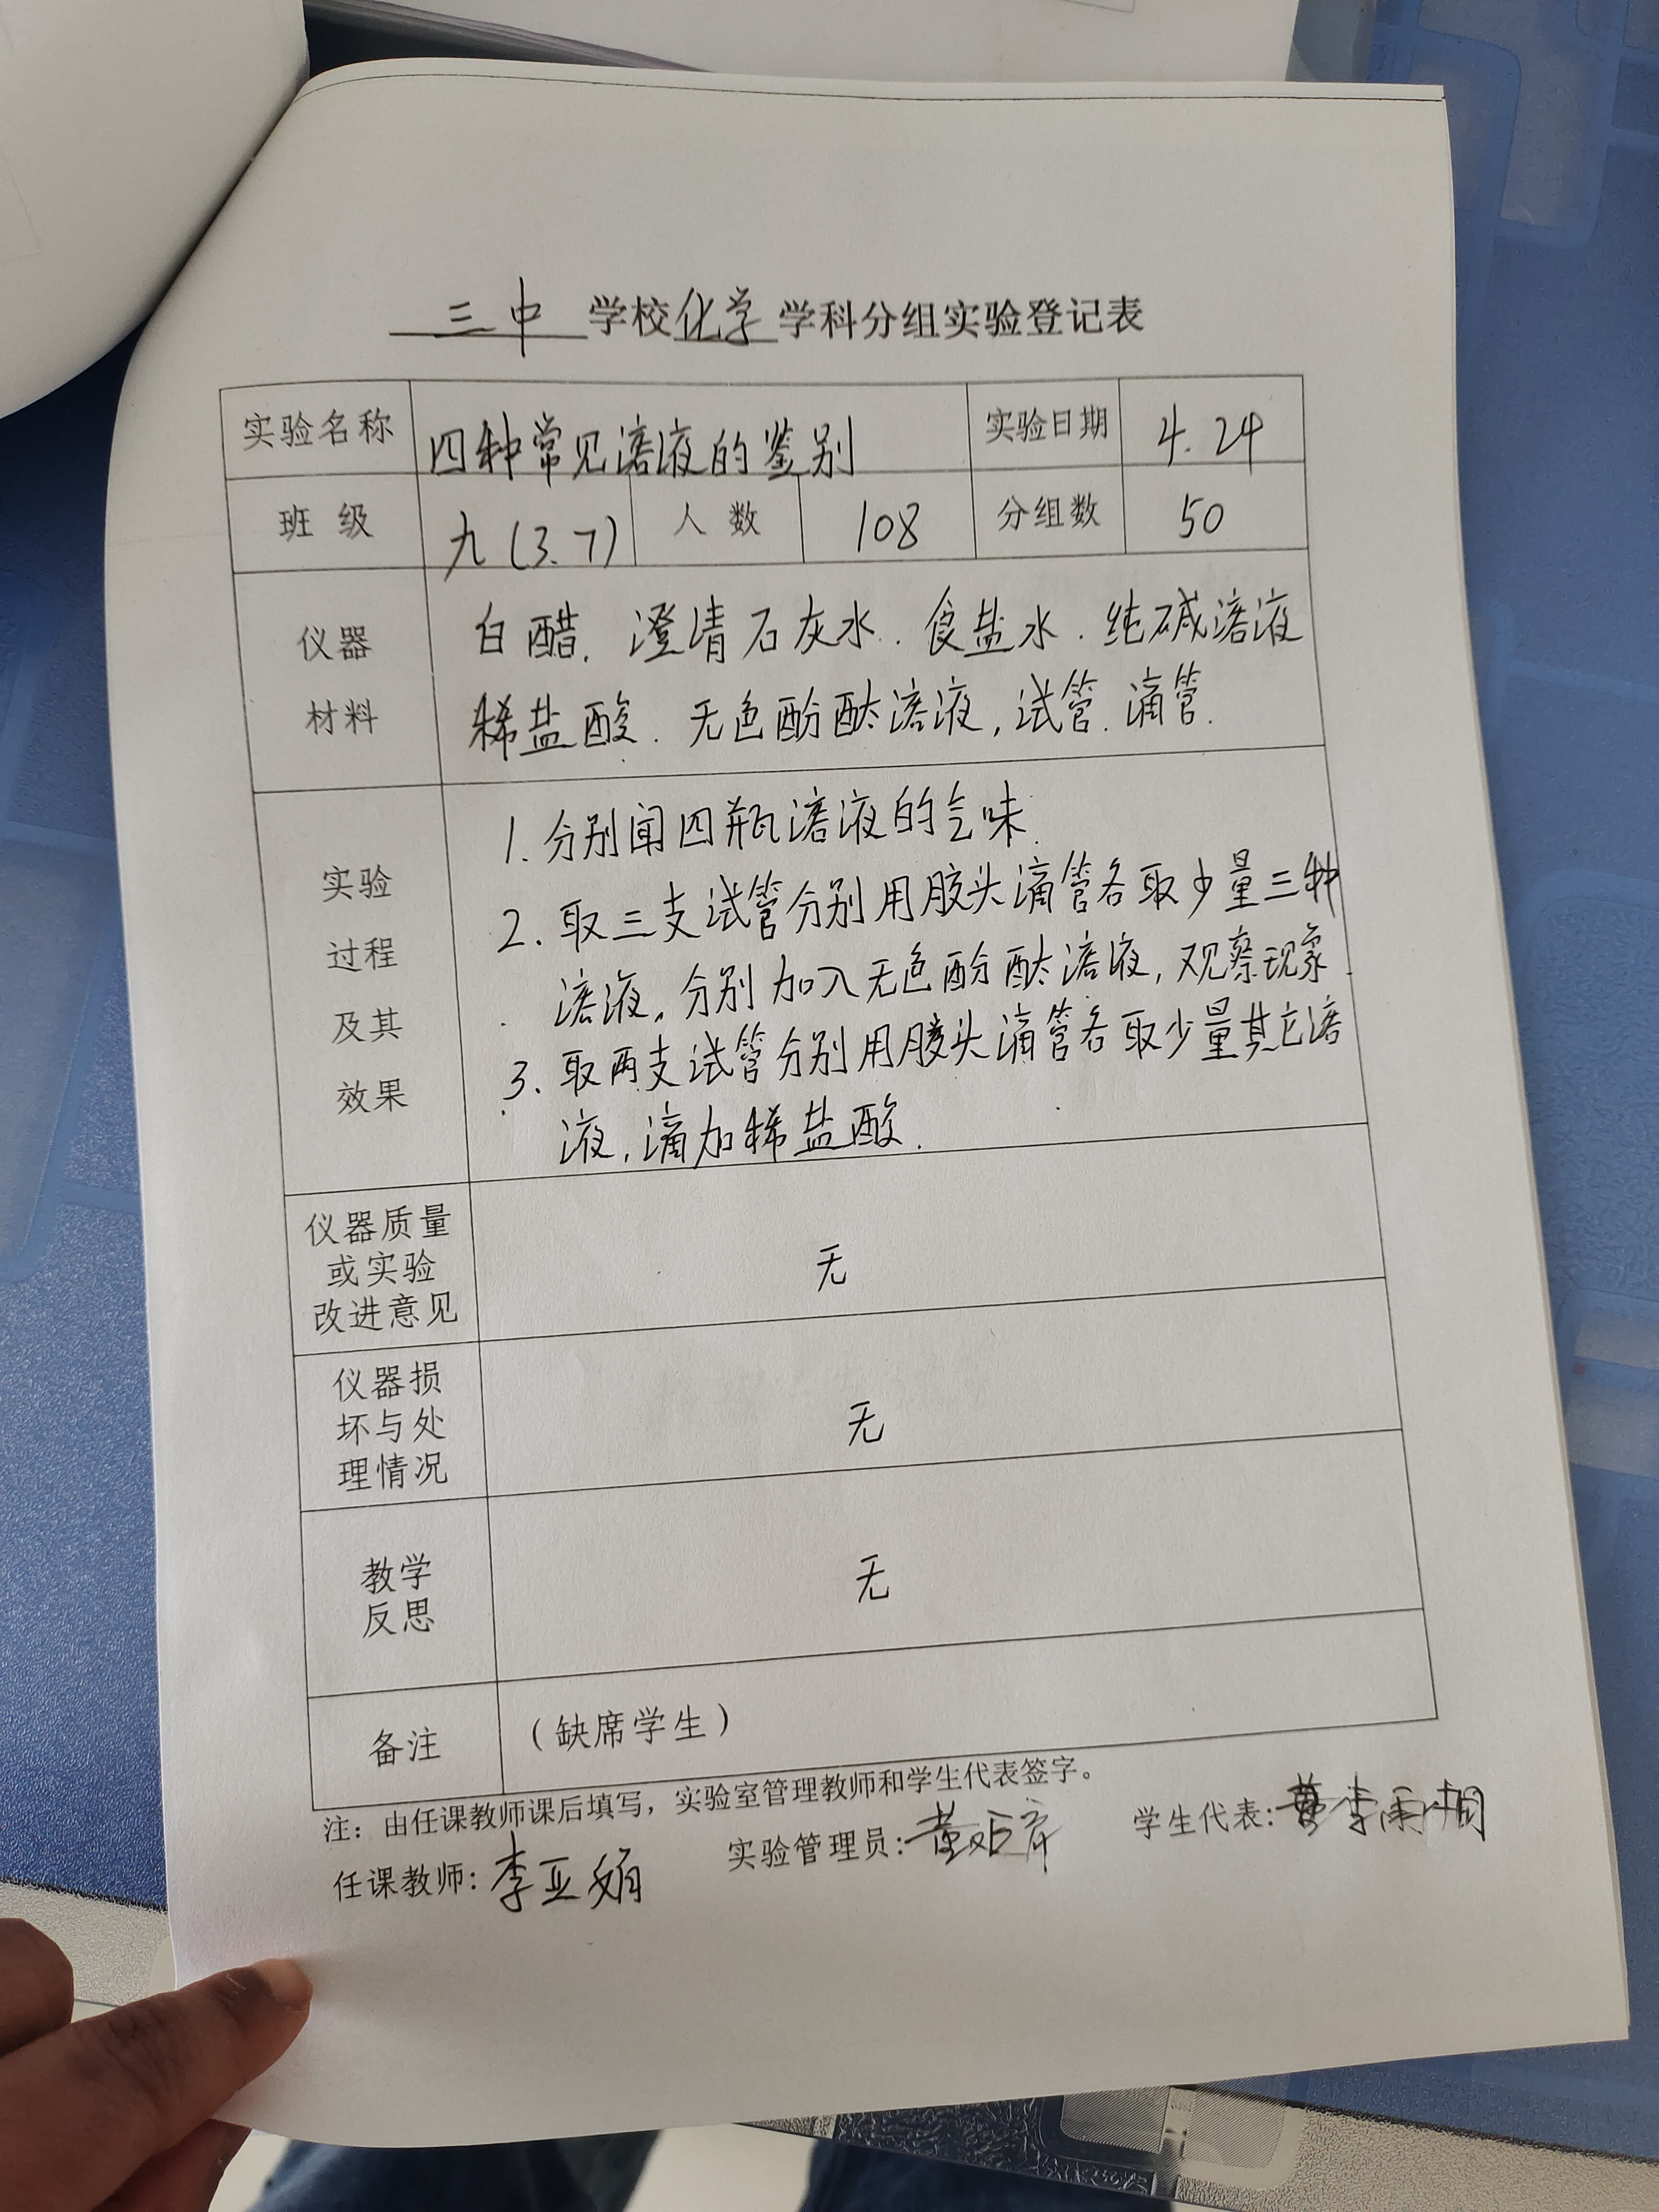 三中 学校 化学 学科分组实验登记表
实验名称 四种常见溶液的鉴别 实验日期 4.24
班 级 九(3.7) 人 数 108 分组数 50
仪器
材料
白醋. 澄清石灰水. 食盐水. 纯碱溶液
稀盐酸. 无色酚酞溶液, 试管. 滴管.
实验
过程
及其
效果
1. 分别闻四瓶溶液的气味.
2. 取三支试管分别用胶头滴管各取少量三种
溶液, 分别加入无色酚酞溶液, 观察现象.
3. 取两支试管分别用胶头滴管各取少量其它溶
液, 滴加稀盐酸.
仪器质量
或实验
改进意见
无
仪器损
坏与处
理情况
无
教学
反思
无
备注 (缺席学生)
注:由任课教师课后填写,实验室管理教师和学生代表签字。
任课教师:李亚娟 实验管理员: 学生代表: